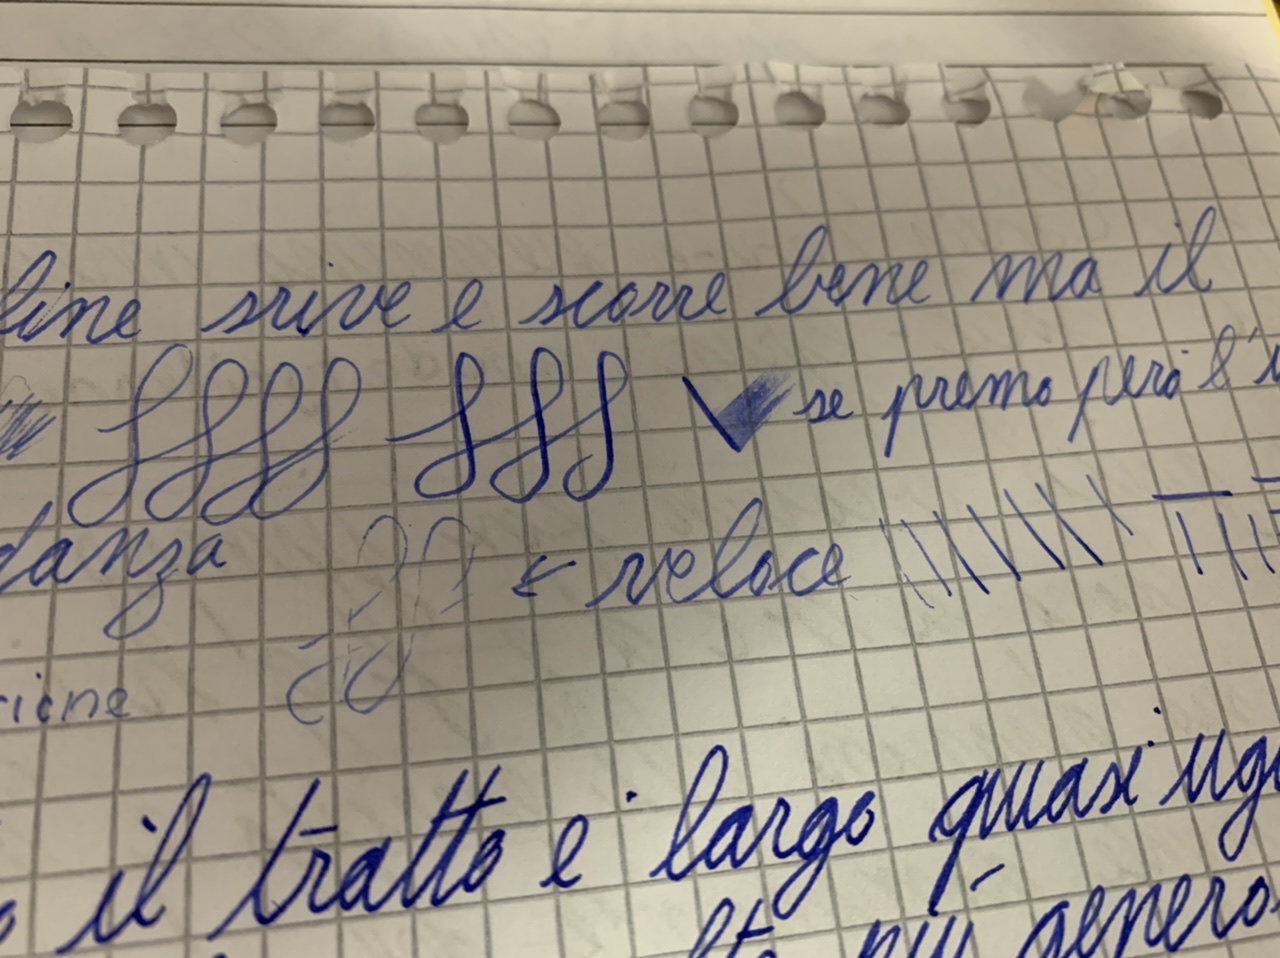 line srive e scorre bene ma il
ffff fff se premo però l'i
danza ← veloce
zione
il tratto è largo quasi ugu
più genero